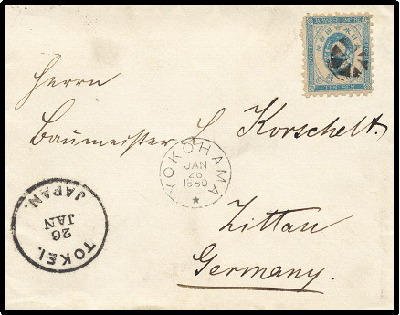 Herrn
Baumeister L Korschelt
Zittau
Germany.
YOKOHAMA
JAN
26
1880
TOKEI.
26
JAN
JAPAN.